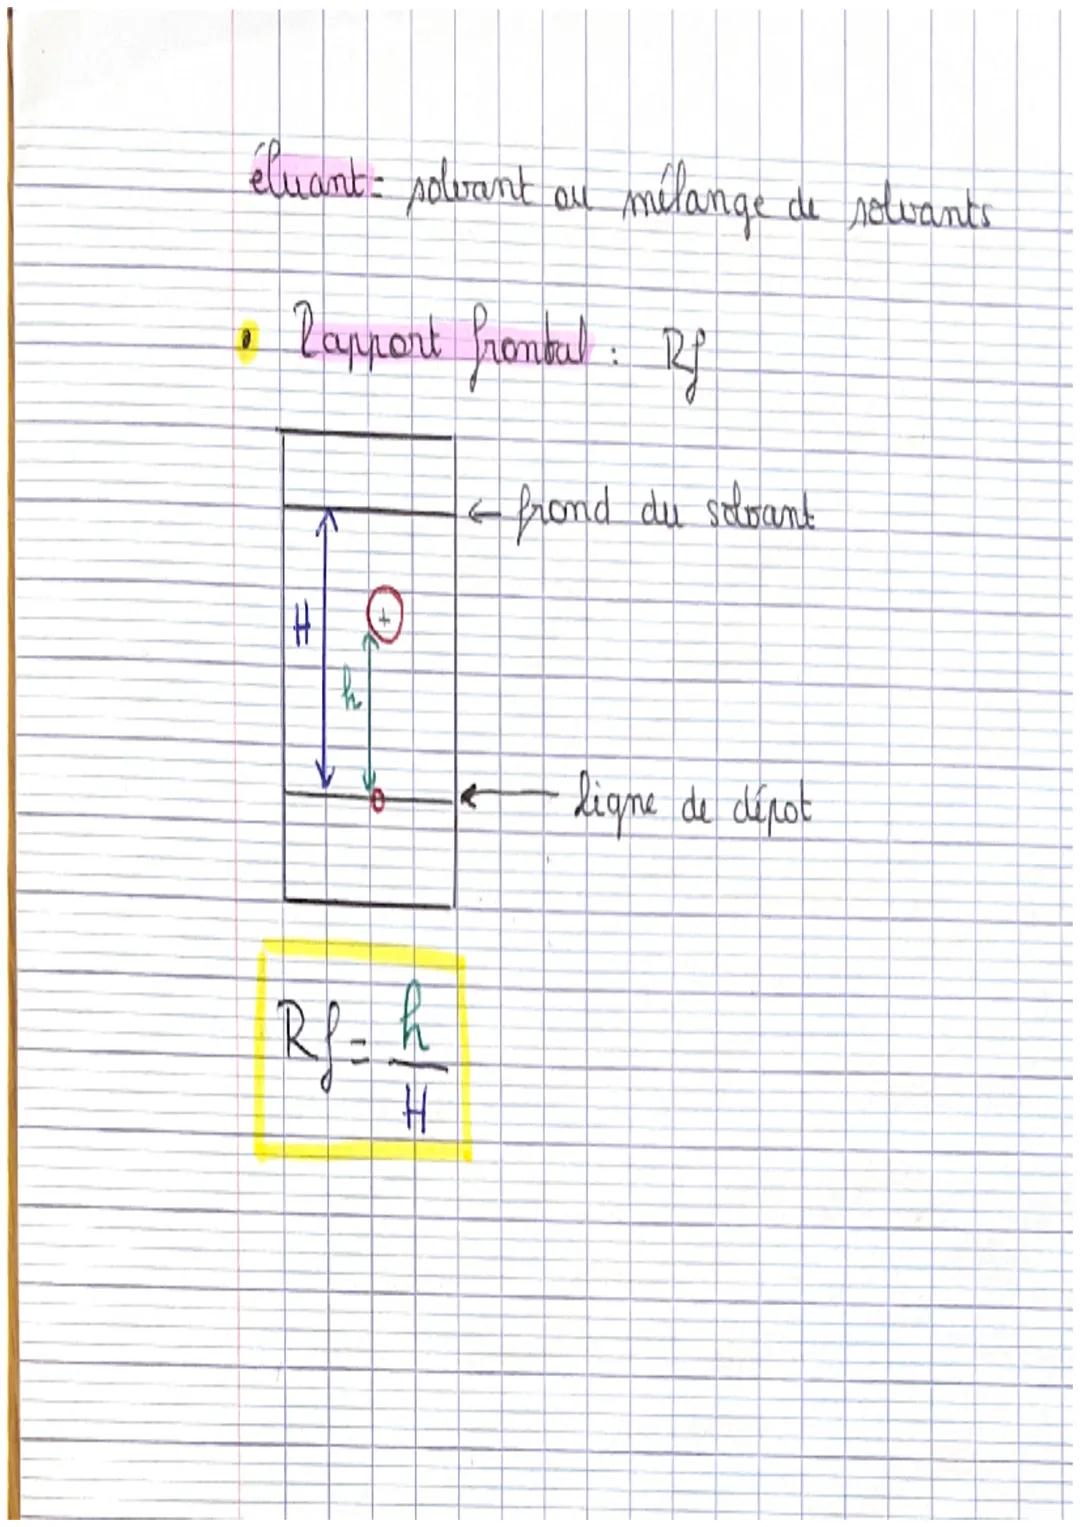 éluant = solvant ou mélange de solvants
• Rapport frontal : Rf
← frond du solvant
H
+
h
← ligne de dépot
Rf = h
H